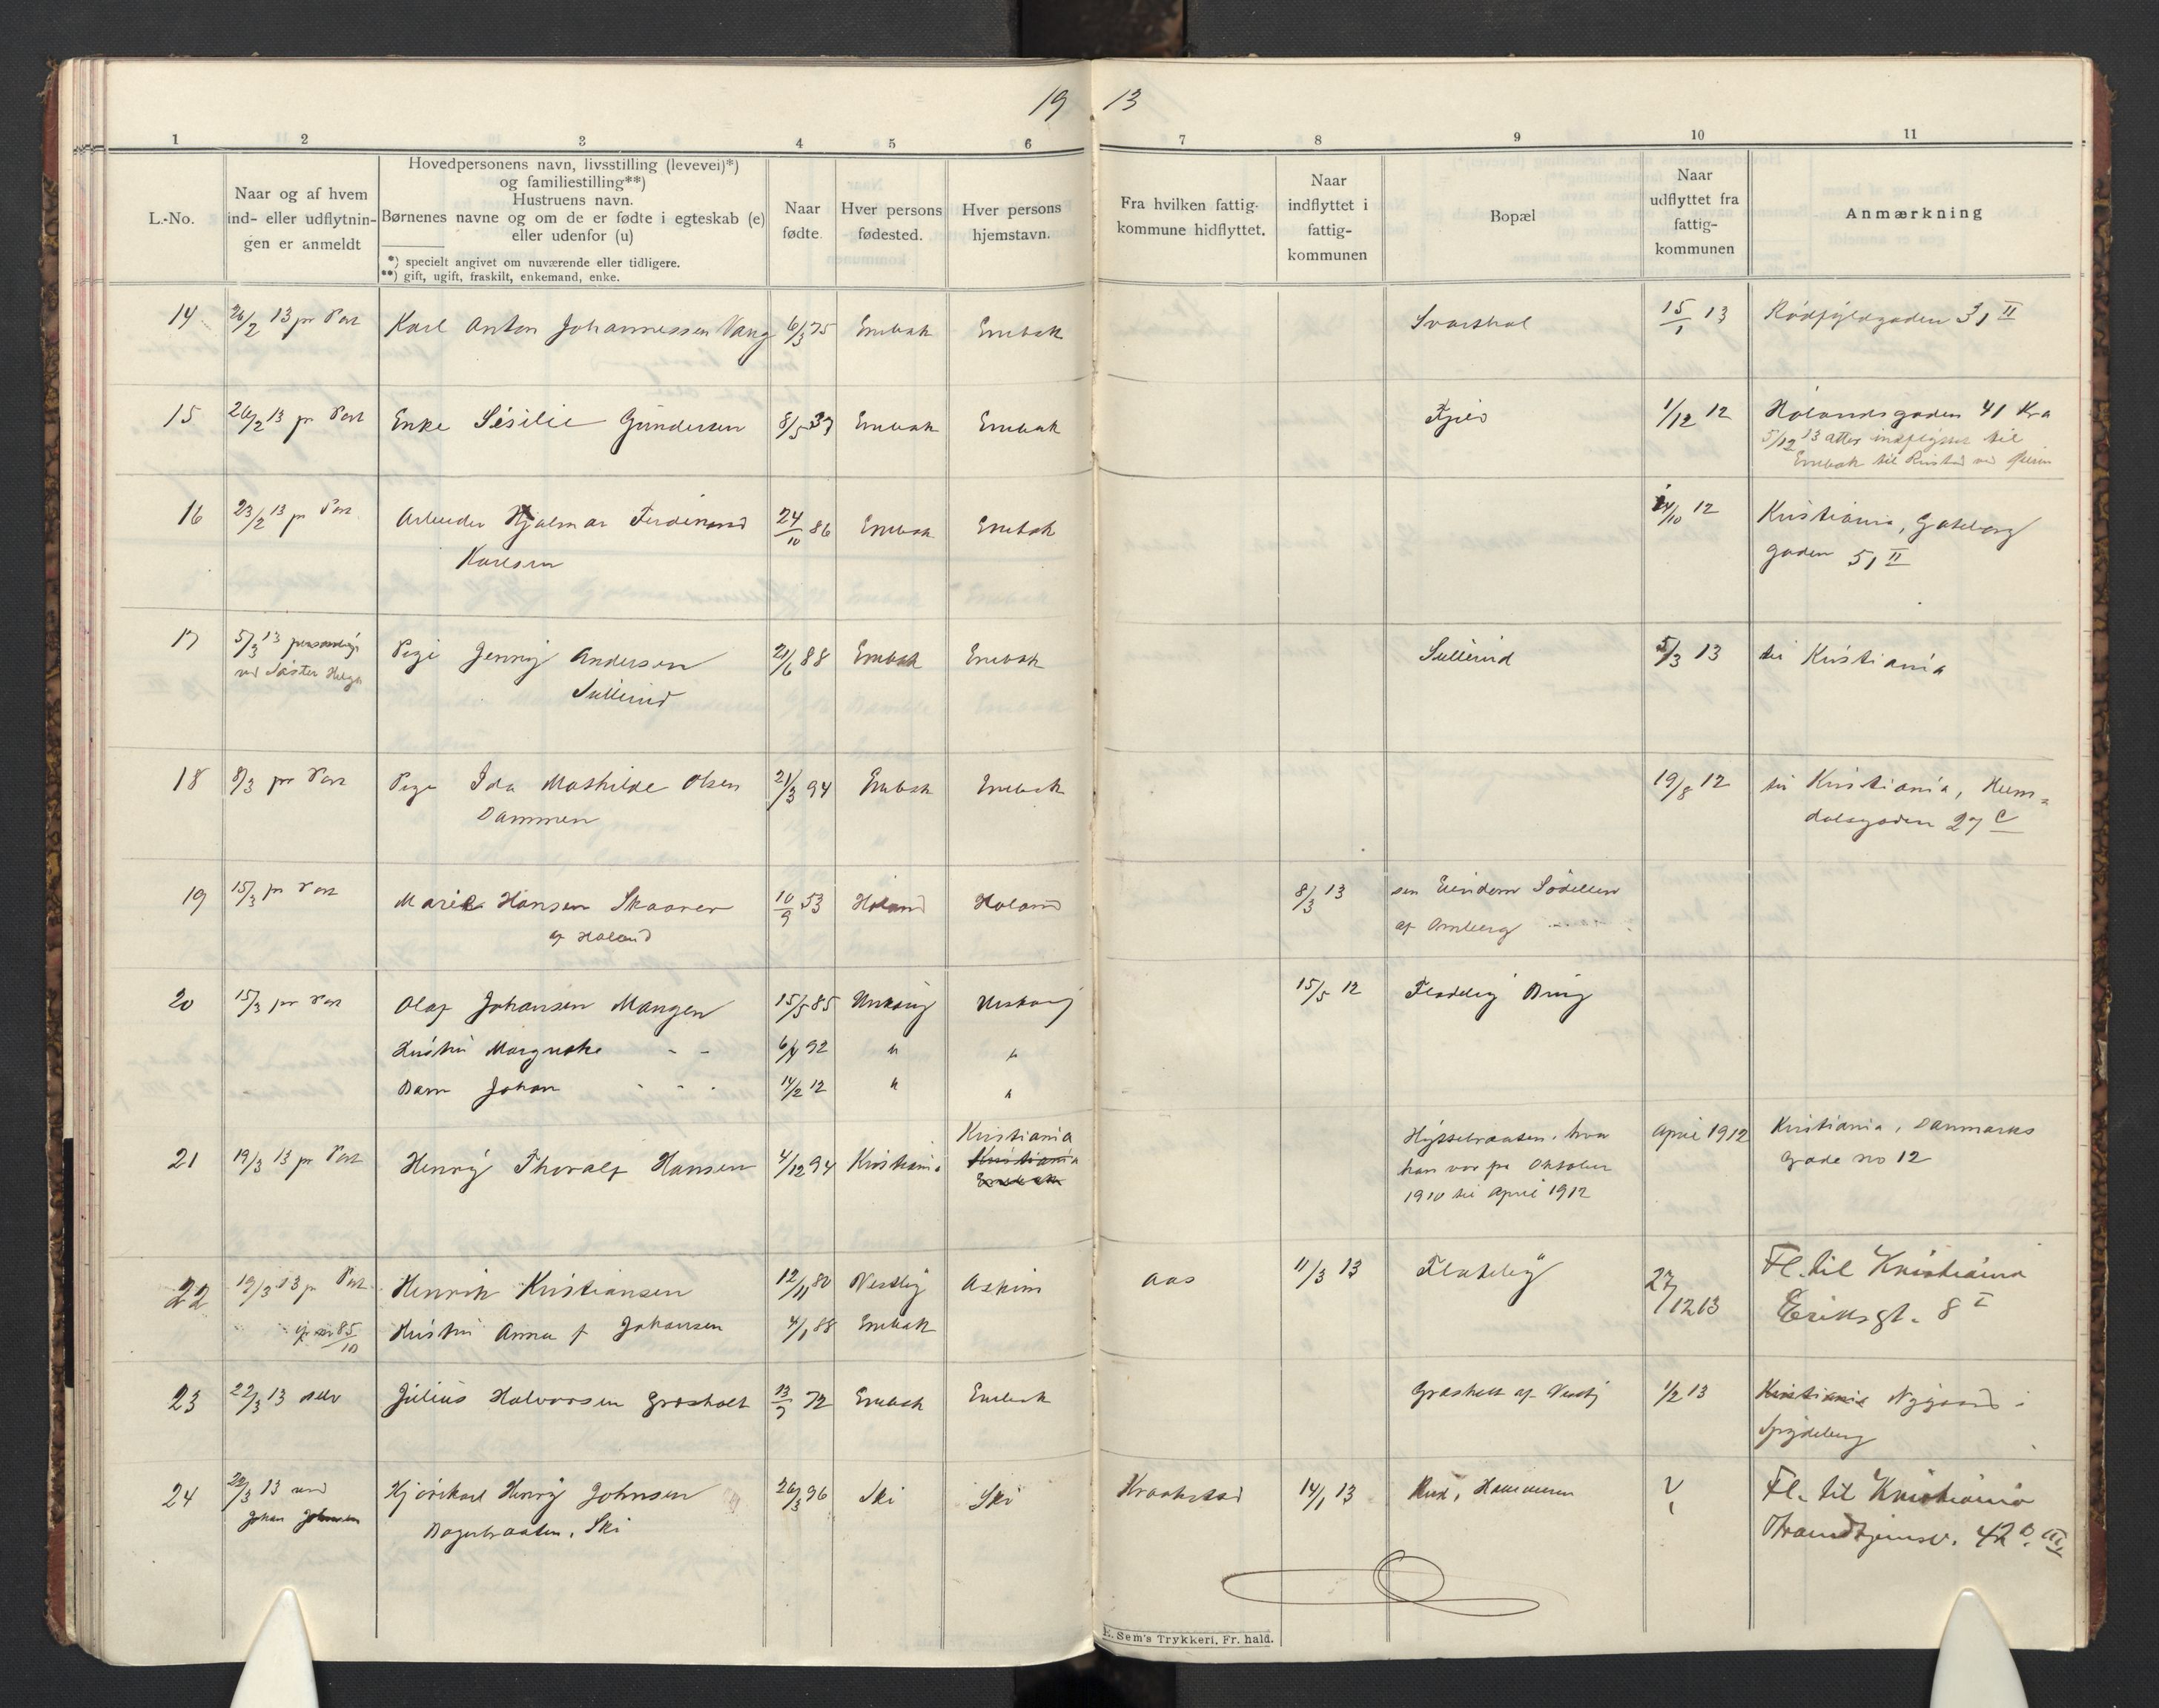 19 13
1 2 3 4 5 6 7 8 9 10 11
L.-No.
Naar og af hvem
ind- eller udflytnin-
gen er anmeldt
Hovedpersonens navn, livsstilling (levevei)*)
og familiestilling**)
Hustruens navn.
Børnenes navne og om de er fødte i egteskab (e)
eller udenfor (u)
*) specielt angivet om nuværende eller tidligere.
**) gift, ugift, fraskilt, enkemand, enke.
Naar
fødte.
Hver persons
fødested.
Hver persons
hjemstavn.
Fra hvilken fattig-
kommune hidflyttet.
Naar
indflyttet i
fattig-
kommunen
Bopæl
Naar
udflyttet fra
fattig-
kommunen
Anmærkning
14 26/2 13 pr Post Karl Anton Johannessen Vang 6/3 75 Enebak Enebak Svarthol 15/1 13 31 II
15 26/2 13 pr Post Enke Sesilie Gundersen 8/5 37 Enebak Enebak 1/12 12 Holandsgaden 41 Kra
5/12 13 atter indflyttet til
Enebak til
16 23/2 13 pr Post Arbeider Hjalmar Ferdinand 24/10 86 Enebak Enebak 24/10 12 Kristiania, Gøteborg
Karlsen gaden 51 II
17 5/3 13 personlig Pige Jenny Andersen 21/6 88 Enebak Enebak Sullerud 5/3 13 til Kristiania
ved Søster Helga Sullerud
18 8/3 pr Post Pige Ida Mathilde Olsen 21/3 94 Enebak Enebak 19/8 12 til Kristiania, Heim=
Dammen dalsgaden 27 c
19 15/3 pr Post Marie Hansen Skaarer 10/9 53 Høland Høland 8/3 13 sin Eiendom
af Høland af
20 15/3 pr Post Olaf Johansen Mangen 15/5 85 Urskoug Urskoug 15/5 12 Flateby Brug
Hustru Margrethe - - 6/4 92 " "
Barn Johan - - - 14/2 12 " "
Kristiania
21 19/3 13 pr Post Henry Thoralf Hansen 4/12 94 Kristiania Kristiania Hyttebraaten, hvor April 1912 Kristiania, Danmarks
Enebak han var fra Oktober gade no 12
1910 til April 1912
22 19/3 13 pr Post Henrik Kristiansen 12/11 80 Vestby Askim Aas 11/3 13 Flateby 27/12 13 Fl. til Kristiania
85/10 Hustru Anna f Johansen 4/1 88 Enebak Eriksgt. 8 I
23 22/3 13 selv Julius Halvorsen Græsholt 13/9 72 Enebak Enebak Græsholt af Vestby 1/2 13 Kristiania Nygaard i
Spydeberg
24 22/3 13 ved Henry Johnsen 26/3 96 Ski Ski Kraakstad 14/1 13 Rud, Hammeren Fl. til Kristiania
Johan Johnsen Bagerbraaten, Ski Trondhjemsv. 42 B. III
E. Sem's Trykkeri, Fr.hald.